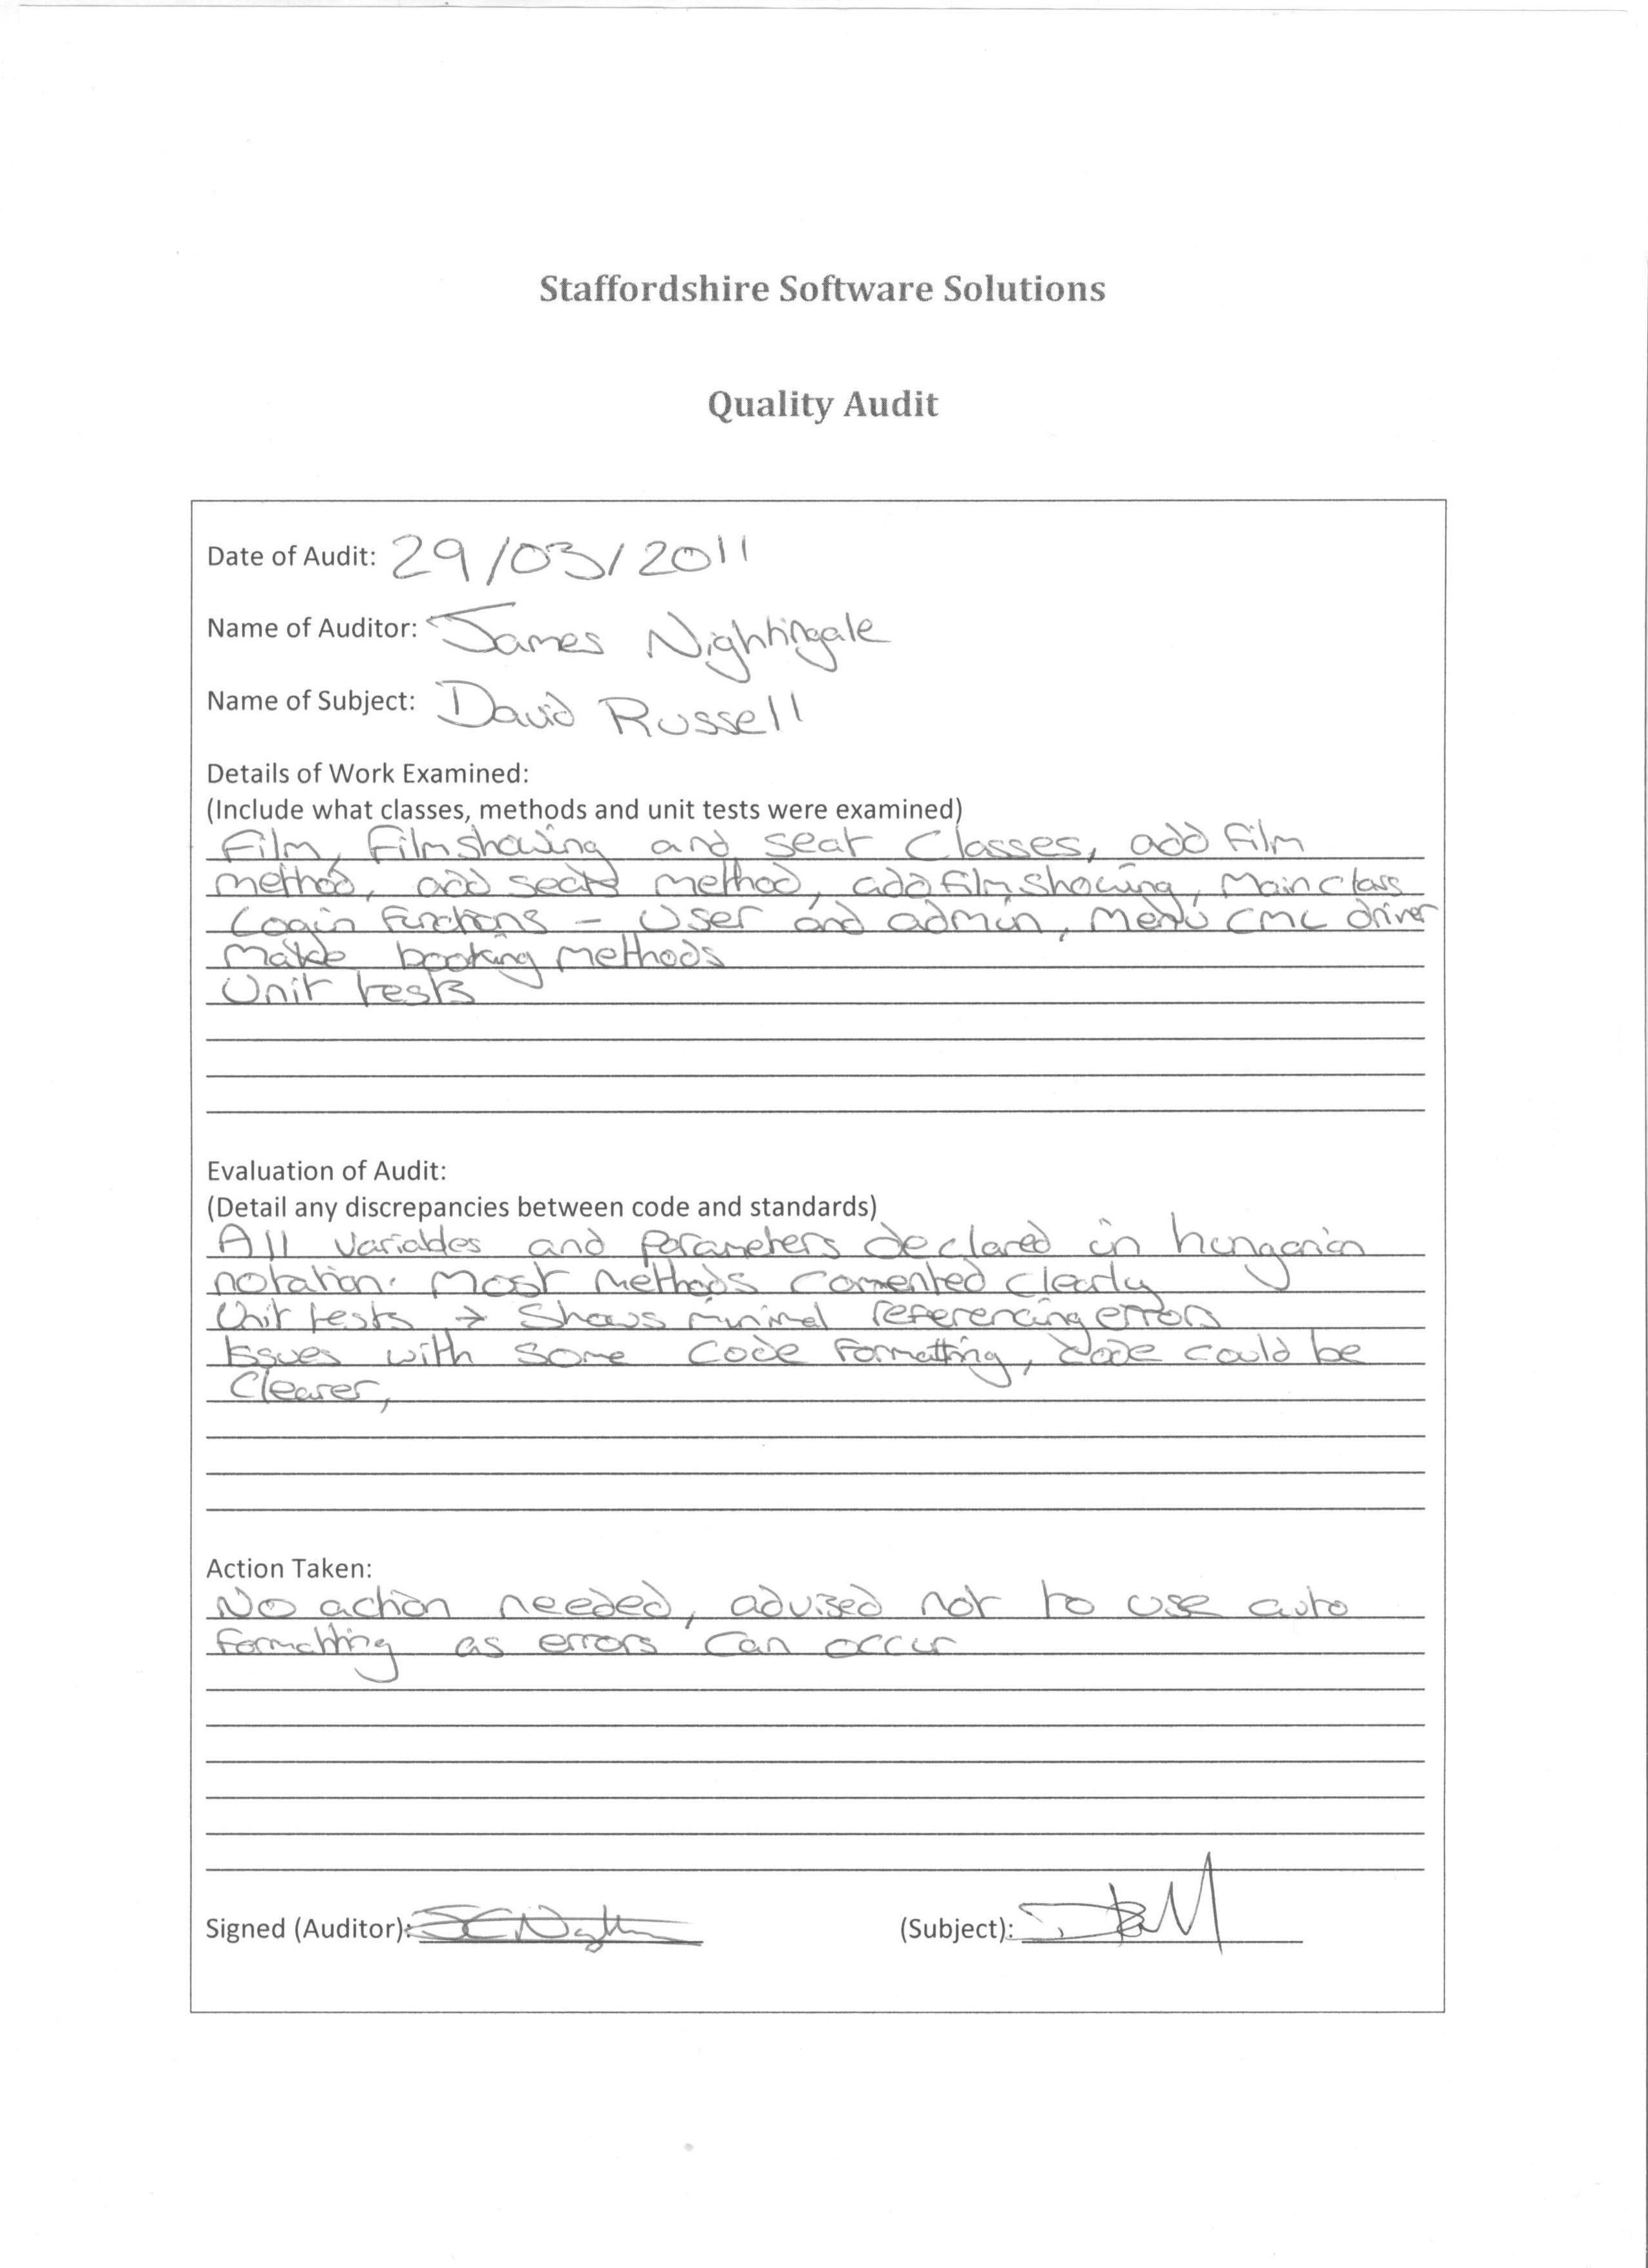 Staffordshire Software Solutions
Quality Audit
Date of Audit: 29/03/2011
Name of Auditor: James Nightingale
Name of Subject: David Russell
Details of Work Examined:
(Include what classes, methods and unit tests were examined)
Film, Filmshowing and seat Classes, add film
method, add seats method, addfilmshowing, Main class
Login functions - User and admin, Menu CMC driver
Make booking methods
Unit tests
Evaluation of Audit:
(Detail any discrepancies between code and standards)
All variables and parameters declared in hungarian
notation. Most methods comented clearly
Unit tests → Shows minimal referencing errors
Issues with some code formatting, code could be
Clearer,
Action Taken:
No action needed, advised not to use auto
formatting as errors can occur
Signed (Auditor): (Subject):